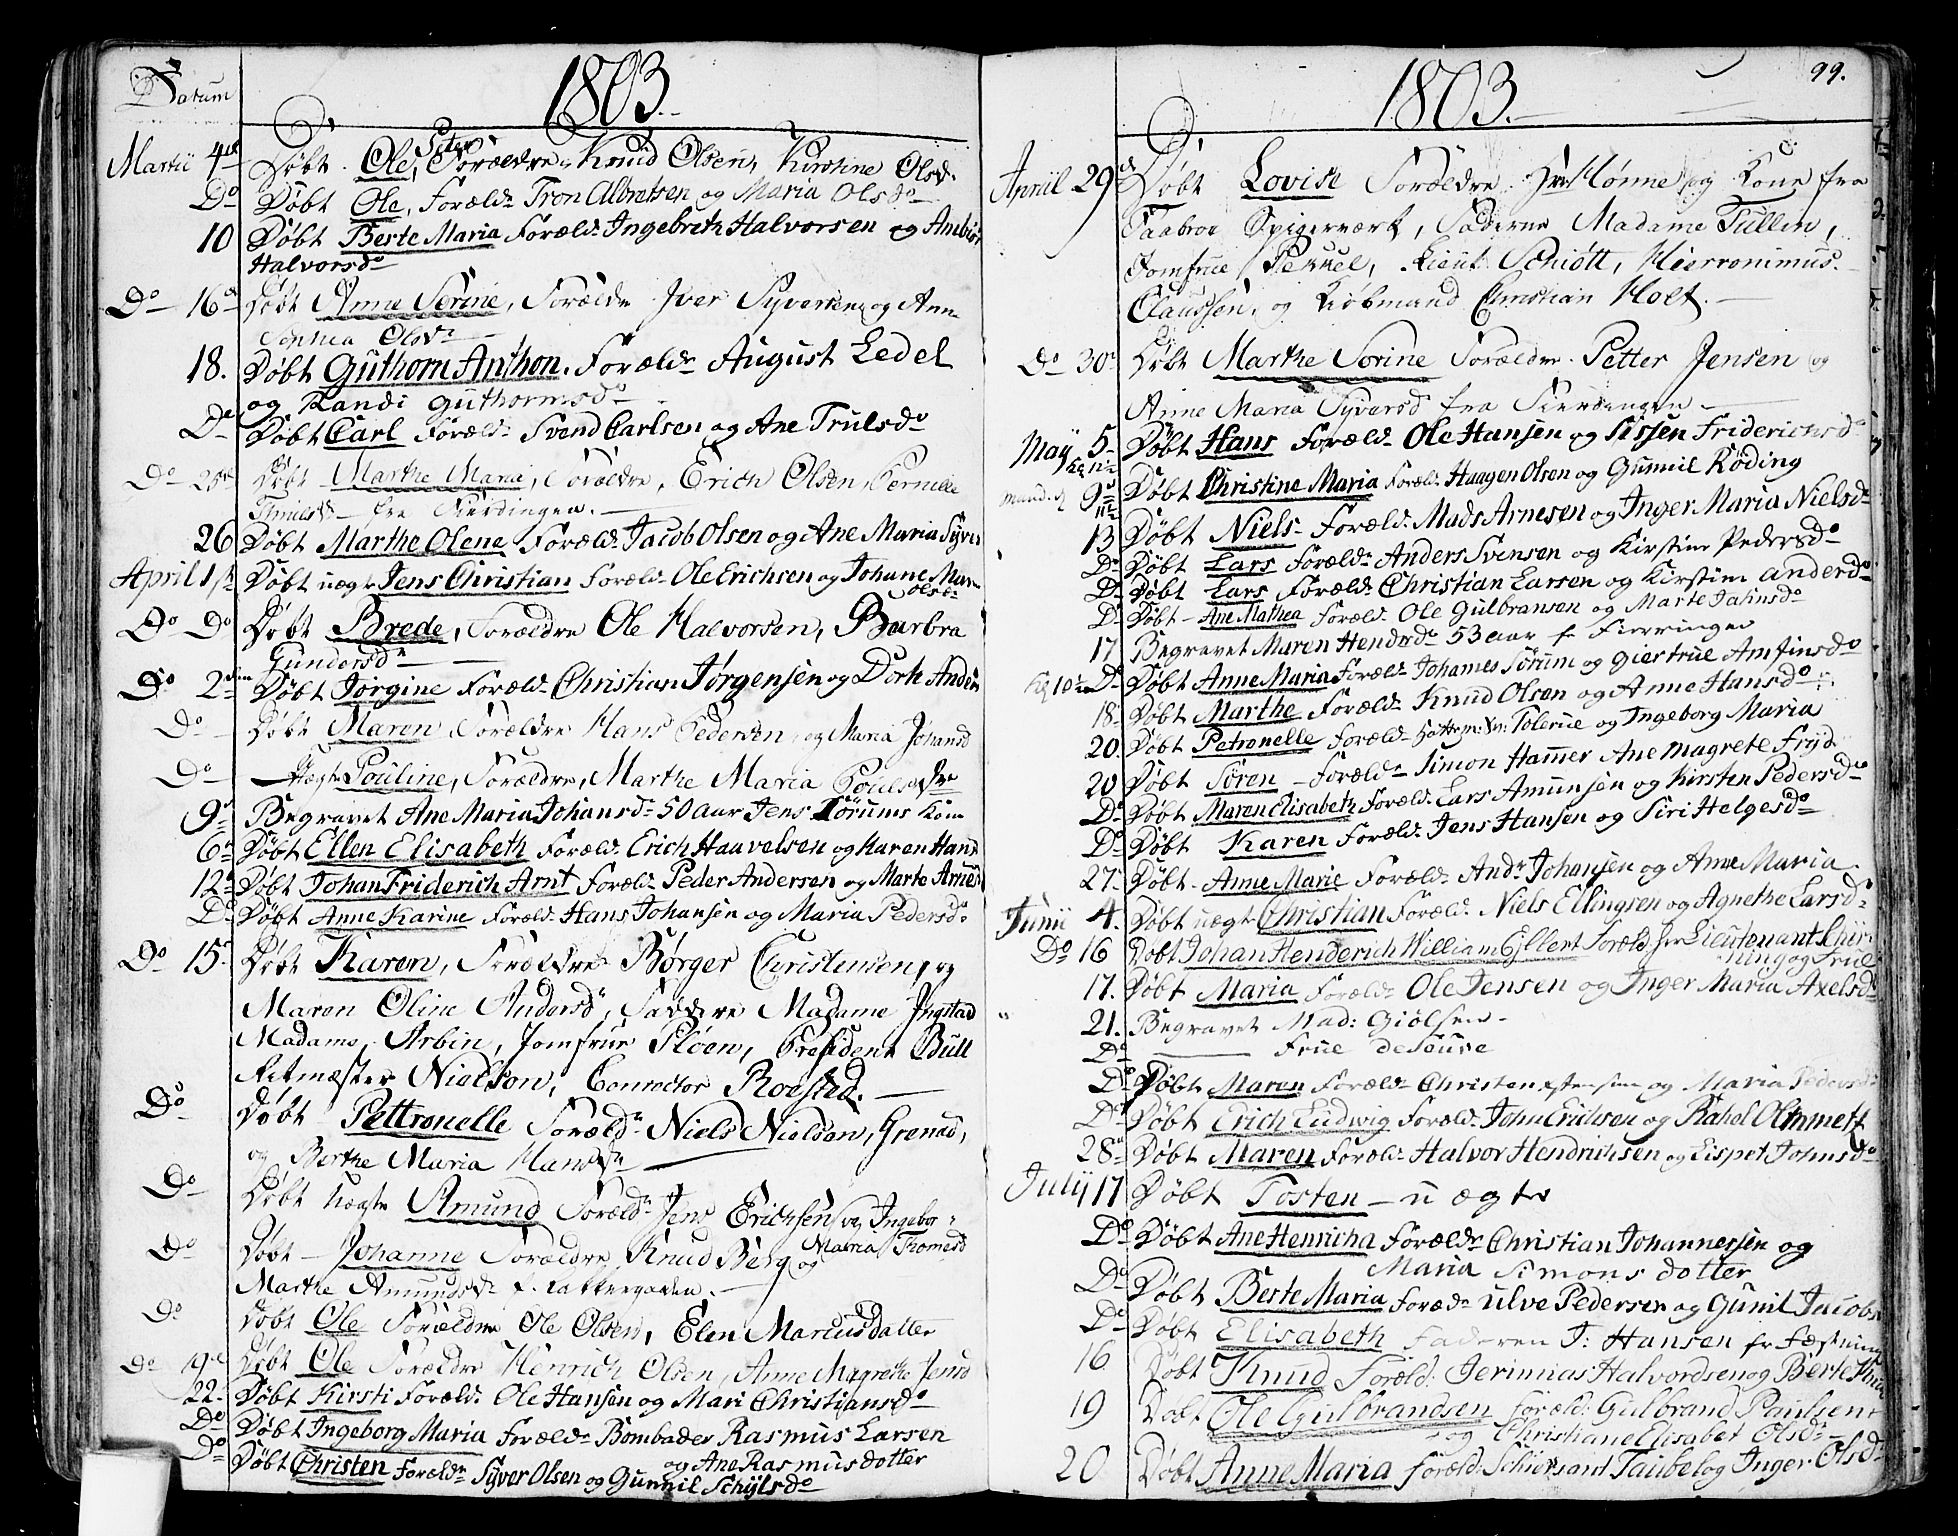 Datum
1803.
Martii 4de Døbt Ole Peter, Forældre Knud Olsen, Kirstine Olsd.
Do Døbt Ole, Foræld. Tron Albretsen og Maria Olsdo
10 Døbt Berte Maria Foræld. Ingebreth Halvorsen og
Halvorsdo
Do 16de Døbt Anne Serine, Forældre Iver Syversen, og Anne
Olsdr
18. Døbt Guthorm Anthon. Foræld. August Ledel
og Randi Guthormsdo
Do Døbt Carl Foræld. Svend Carlsen og Ane Trulsdo
Do 25de Døbt Marthe Marie, Forældre, Erich Olsen, Pernelle
fra Fierdingen.
26 Døbt Marthe Olene Foræld. Jacob Olsen og Ane Maria
April 1ste Døbt uægte Jens Christian Foræld. Ole Erichsen og Johane
Olsdr
Do Do Døbt Brede, Forældre Ole Halvorsen, Barbra
Gundersdr
Do 2den Døbt Jørgine Foræld. Christian Jørgensen og Dorte
Do Døbt Maren, Forældre Hans Pedersen, og Maria Johansd
Do Uægte Pouline, Forældre, Marthe Maria
9 Begravet Ane Maria Johansdr 50 aar Jens Sørums Kone
6 Døbt Ellen Elisabeth Foræld. Erich Haavelsen og Karen Hans
12 Døbt Johan Friderich Arnt Foræld. Peder Andersen og Marte
Do Døbt Anne Karine Foræld. Hans Johansen og Maria Pedersdo
Do 15 Døbt Karen, Forældre Børger Christensen, og
Maren Oline Andersdr, Faddere Madame Ingstad
Madame Arbin, Jomfrue Floen, Præsident Bull
Ritmæster Nielson, Conrector Rosted.
Do Døbt Pettronelle Foræld. Niels Nielson, Grenad,
og Berthe Maria Hansdr
Do Døbt uægte Amund Foræld. Jens Erichsen og Ingebor
Maria Thomesd
Do Døbt Johanne Forældre, Knud Berg og
Marthe Amundsdr
Do Døbt Ole Forældre Ole Olsen, Elen Marcusdatter
Do 19de Døbt Ole Forældre Henrich Olsen, Anne Magrethe Jensd
22 Døbt Kirsti Foræld. Ole Hansen og Mari Christiansdo
Do Døbt Ingeborg Maria Foræld. Bombader Rasmus Larsen
og Ane Rasmusdotter
Do Døbt Christen Foræld. Syver Olsen og Gunnil
99.
1803.
Apriil 29de Døbt Lovise Forældre Hr Mønne og Kone fra
Taabroe Spigerverk, Fadderne Madame Tullen,
Jomfrue, Lieut. Schiøtt, Hierronimus
Claussen, og Kiøbmand Christian Holt.
Do 30 Døbt Marthe Sorine Forældre Petter Jensen og
Anne Maria Syversd fra Fierdingen
May 5 Døbt Hans Foræld. Ole Hansen og Sissen Friderichsdo
9 Døbt Christine Maria Foræld. Haagen Olsen og Gunnil Røding
13 Døbt Niels Foræld. Mads Arnesen og Inger Maria Nielsdr
Do Døbt Lars Foræld. Anders Svensen og Kirstine Pedersdo
Do Døbt Lars Foræld. Christian Larsen og Kirstine Anderdo
Do Døbt Ane Mathea Foræld. Ole Gulbransen og Marte Jahnsdo
17 Begravet Maren Hendrdr 53 aar f. Fierringen
Do Døbt Anne Maria Foræld. Johanes Sørum og Giertrue Amfinsdo
18 Døbt Marthe Foræld. Knud Olsen og Anne Hansdo
20. Døbt Petronelle Foræld. Tolerue og Ingeborg Maria
20 Døbt Søren Foræld. Simon Hammer Ane Magrete Fryd
Do Døbt Maren Elisabeth Foræld. Lars Amunsen og Kirsten Pedersdo
Do Døbt Karen Foræld. Jens Hansen og Siri Helgesdo
27 Døbt Anne Marie Foræld. Andr Johansen og Anne Maria
Junii 4. Døbt uægte Christian Foræld. Niels Ellingsen og Agnethe Larsd
Do 16 Døbt Johan Henderich William Ejlert Foræld. Hr Lieutenant
og Frue
17. Døbt Maria Foræld. Ole Jensen og Inger Maria Axelsd
21. Begravet Mad: Giølsen
Do Frue deSeuve
Do Døbt Maren Foræld. Christen og Maria Pedersd
Do Døbt Erich Ludwig Foræld. John Erichsen og Rahel
28 Døbt Maren Foræld. Halvor Hendrichsen og Lispet Johnsdo
July 17 Døbt Tosten uægte
Do Døbt Ane Henricha Forældre Christian Johannesen og
Maria Simonsdotter
Do Døbt Berte Maria Foræd. Ulve Pedersen og Gunil Jacobs
Do Døbt Elisabeth Faderen J: Hansen
16 Døbt Knud Foræld: Jerimias Halvordsen og Berte
19 Døbt Ole Gulbrandsen Foræld: Gulbrand Paulsen
og Christiane Elisabet Olsdr
20 Døbt Anne Maria Foræld: Taubel og Inger Olsd